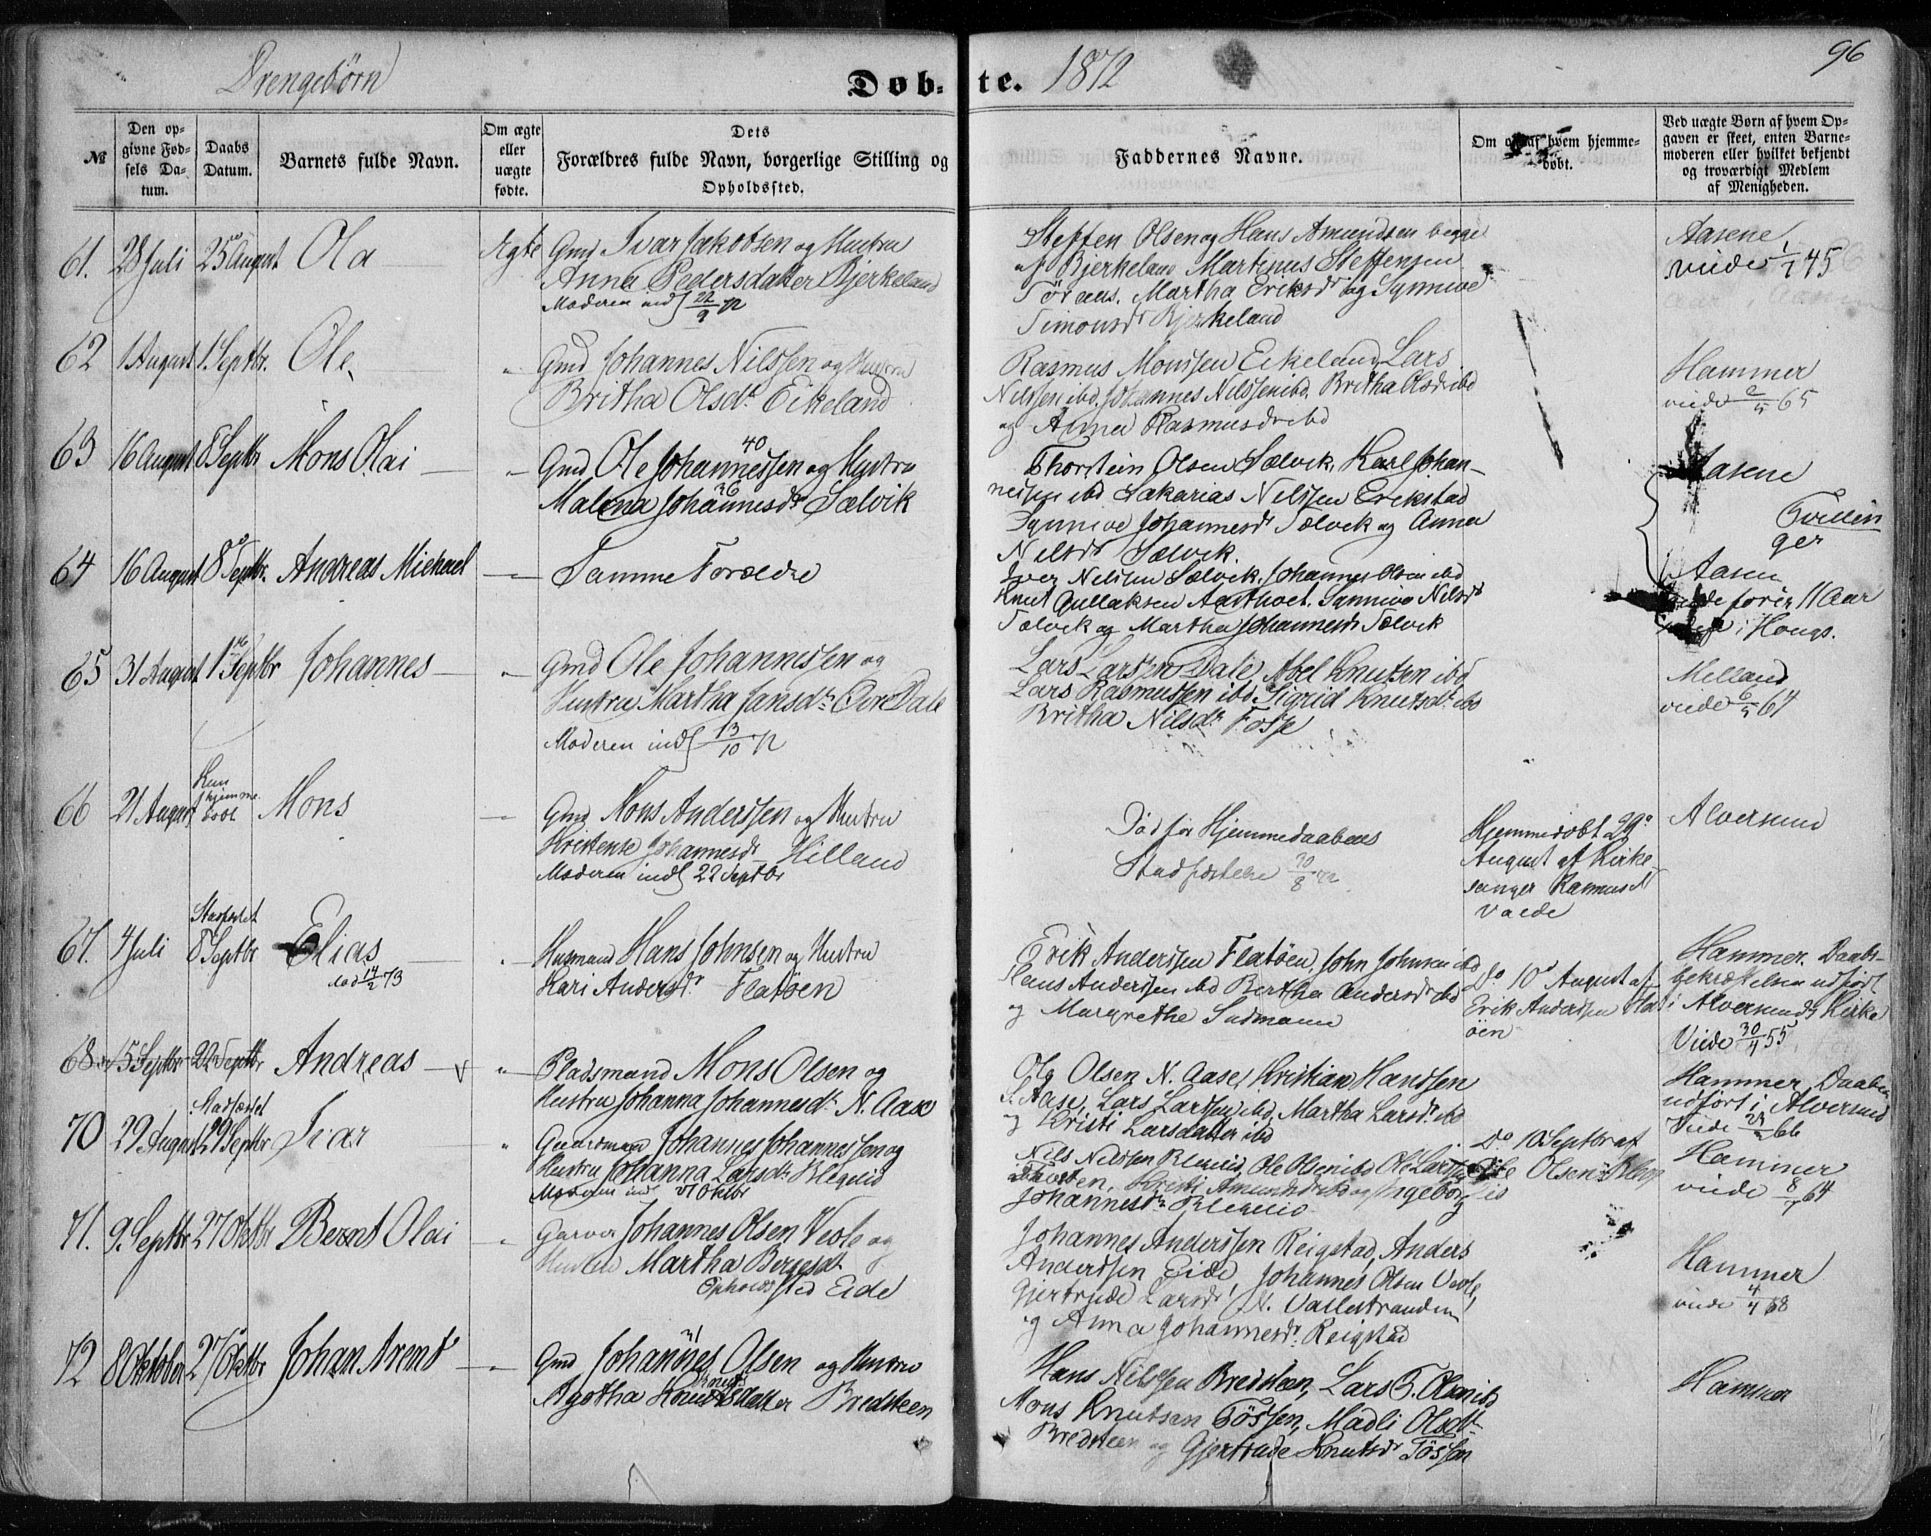 Drengebørn
Døbte. 1872
96
№
Den opgivne Fødsels Datum.
Daabs Datum.
Barnets fulde Navn.
Om ægte eller uægte fødte.
Dets Forældres fulde Navn, borgerlige Stilling og Opholdssted.
Faddernes Navne.
Om og af hvem hjemmedøbt.
Ved uægte Børn af hvem Opgaven er skeet, enten Barnemoderen eller hvilket bekjendt og troværdigt Medlem af Menigheden.
61. 28 Juli 25 August Ola Ægte Gmd Ivar Jakobsen og Hustru
Anna Pedersdatter Bjerkeland
Moderen indl 22/9 72
Steffen Olsen og Hans Amundsen begge
af Bjerkeland Martinus Steffensen
Martha Eriksdr og Synneve
Simonsdr Bjerkeland
Aasene
viede 1/1 45
62 1 August 1 Septbr. Ole " Gmd Johannes Nilssen og Hustru
Britha Olsdr Eikeland
Rasmus Monssen Eikeland, Lars
Nilssen ibd. Johannes Nilssen ibd. Britha Olsdr ibd
og Anna Rasmusdr ibd
Hammer
viede 2/5 65
63 16 August 8 Septbr Mons Olai " Gmd Ole Johannessen og Hustru
40
Malena Johannesdr Sælvik
36
Thorstein Olsen Sælvik, Karl Johan-
nessen ibd Sakarias Nilssen Erikstad
Synneve Johannesdr Sælvik og Anna
Nilsdr Sælvik.
Aasene
Tvillin
ger
64 16 August 8 Septbr. Andreas Michael Samme Forældre
Iver Nilssen Sælvik, Johannes Olsen ibd
Knut Gullaksen Synneve Nilsdr
Sælvik og Martha Johannesdr Sælvik
Aasen
for 11 Aar
i Houge.
65 31 August 1 Septbr Johannes " Gmd Ole Johannessen og
Hustru Martha Jansdr Øvre Dale
Moderen indl 13/10 72
Lars Larssen Dale, Abel Knutsen ibd
Lars Rasmussen ibd, Sigrid Knutsdr ibd
Britha Nilsdr Fosse
Melland
viede 6/5 64
66 21 August Kun hjemme døbt Mons Gmd Mons Anderssen og Hustru
Kristense Johannesdr Hilland
Moderen indl 22 Septbr
Død før Hjemmedaabens
Stadfæstelse 30/8 72
Hjemmedøbt 29
August af Kirke-
sanger Rasmus N
Valde
Alversund
67. 4 Juli Stadfæstet 8 Septbr Elias Husmand Hans Johnsen og Hustru
død 14/2 73
Kari Andersdr Flatøen
Erik Anderssen Flatøen, John Johnsen ibd
Hans Anderssen ibd Bertha Andersdr ibd
og Margrethe Sudmann
Do 10 August af
Erik Andersen Flat
øen
Hammer. Daabs-
bekræftelsen udført
i Alversunds Kirke
Viede 30/4 55
68 15 Septbr 22 Septbr Andreas " Pladsmand Mons Olsen og
Hustru Johanna Johannesdr N. Aase
Ola Olsen N. Aase, Kristian Hansen
S. Aase, Lars Larssen ibd, Martha Larsdr ibd
og Kristi Larsdatter ibd
Hammer Daaben
udført i Alversund
Viede 66
70 29 August Stadfæstet 29 Septbr Ivar " Gaardmand Johannes Johannessen og
Hustru Johanna Larsdr Blegelid
Moderen ind Oktbr
Nils Nilssen Blegelid, Ole Olsen ibd Ole Larssen
Kristi Amundsdr ibd og Ingeborg
Johannesdr Blegelid
Do 10 Septbr af
Ole Olsen Bleg
lid
Hammer
viede 8/7 64
71. 9. Septbr 27 Oktbr Bernt Olai " Garver Johannes Olsen Veole og
Hustru Martha Bergesdr
Opholdssted Eide
Johannes Anderssen Reigstad, Anders
Anderssen Eide, Johannes Olsen Veole,
Gjertrude Larsdr N. Vallestranden
og Anna Johannesdr. Reigstad
Hammer
viede 4/4 68
72 8 Oktober 27 Oktbr Johan Arent " Gmd Johannes Olsen og Hustru
Agotha Knutsdatter Bredsteen
Hans Nilssen Bredsteen, Lars T. Olsen ib
Mons Knutsen Tøssen, Madli Olsdr
Bredsteen og Gjertrude Knutsdr Tøssen
Hammer